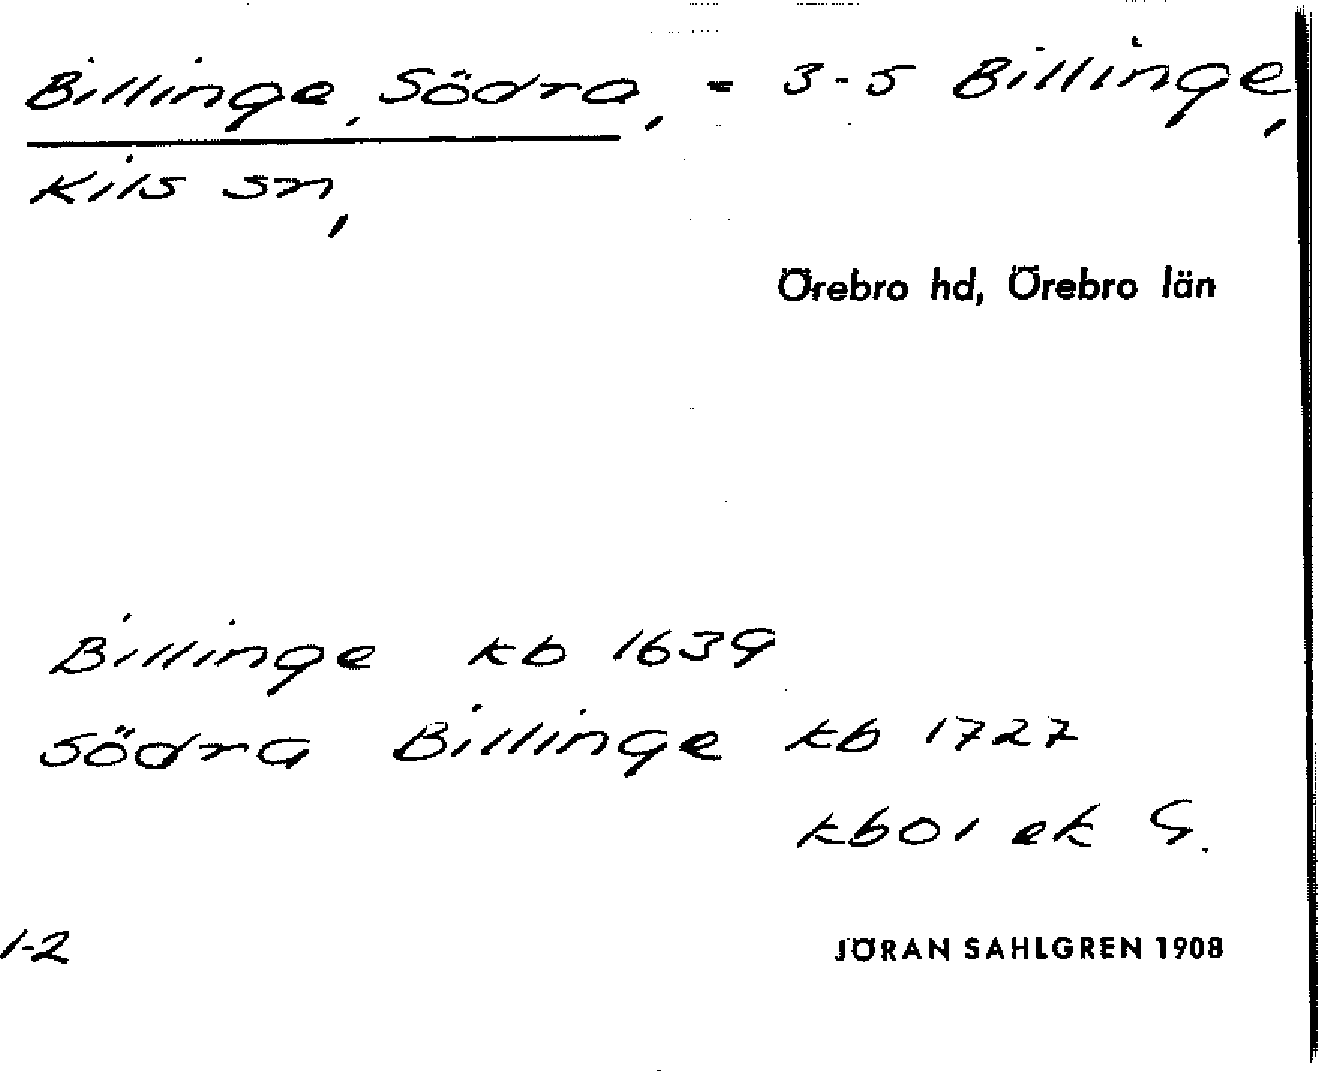 Billinge, Södra, = 3-5 Billinge,
Kils sn,
Örebro hd, Örebro län
Billinge kb 1639
Södra Billinge kb 1727
kb01 ek G.
1-2
JÖRAN SAHLGREN 1908